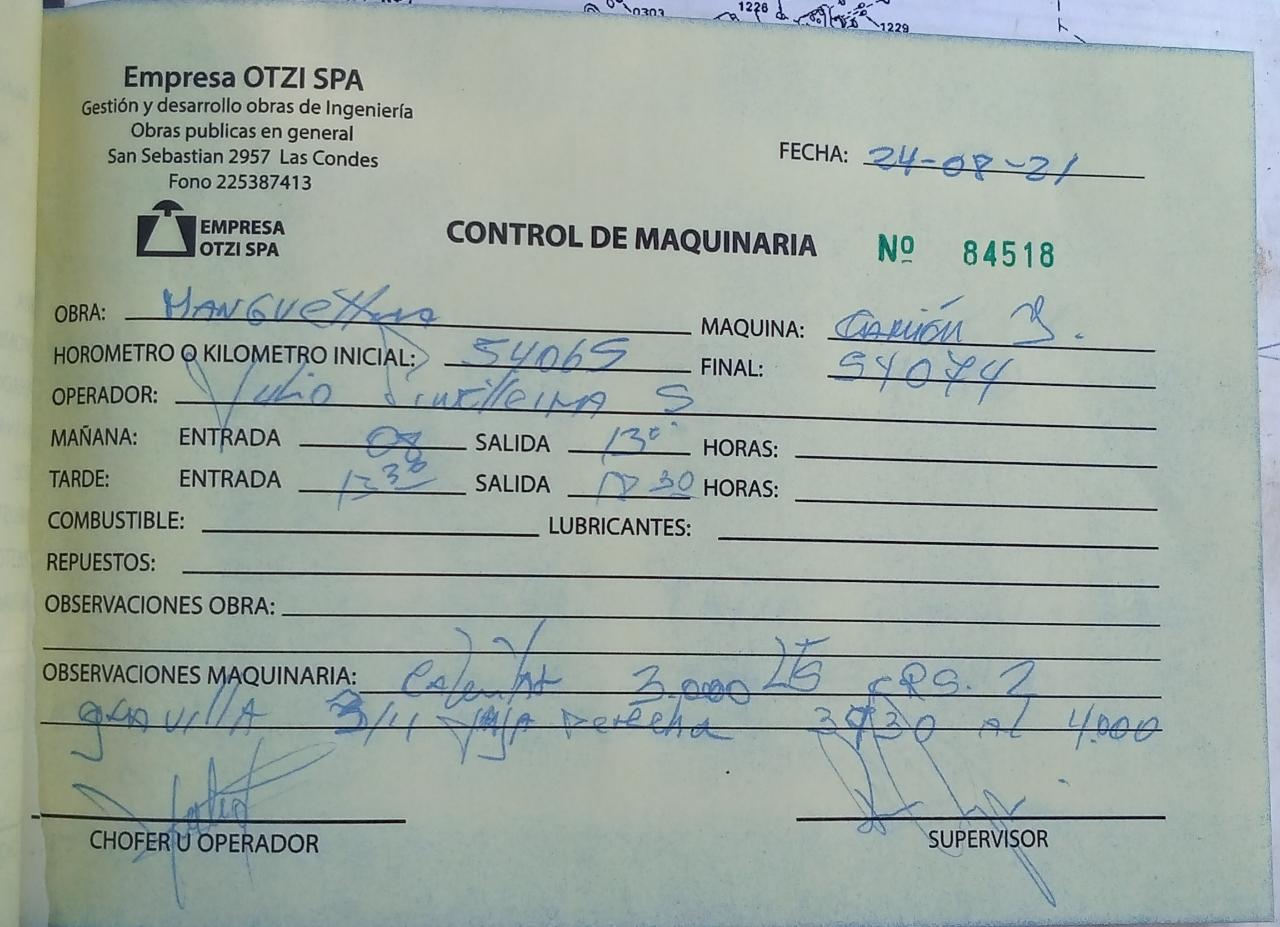 0303
1226
1229
Empresa OTZI SPA
Gestión y desarrollo obras de Ingeniería
Obras publicas en general
San Sebastian 2957 Las Condes
Fono 225387413
FECHA: 24-08-21
EMPRESA
OTZI SPA
CONTROL DE MAQUINARIA Nº 84518
OBRA: MAQUINA: Camión 3.
HOROMETRO O KILOMETRO INICIAL: 54065 FINAL: 54074
OPERADOR: Julio S
MAÑANA: ENTRADA 08 SALIDA 13 HORAS:
TARDE: ENTRADA 13 30 SALIDA 18 30 HORAS:
COMBUSTIBLE: LUBRICANTES:
REPUESTOS:
OBSERVACIONES OBRA:
OBSERVACIONES MAQUINARIA: 3.000 LTS CRS. 2
gravilla 3/4 faja Derecha 3930 AL 4.000
CHOFER U OPERADOR
SUPERVISOR